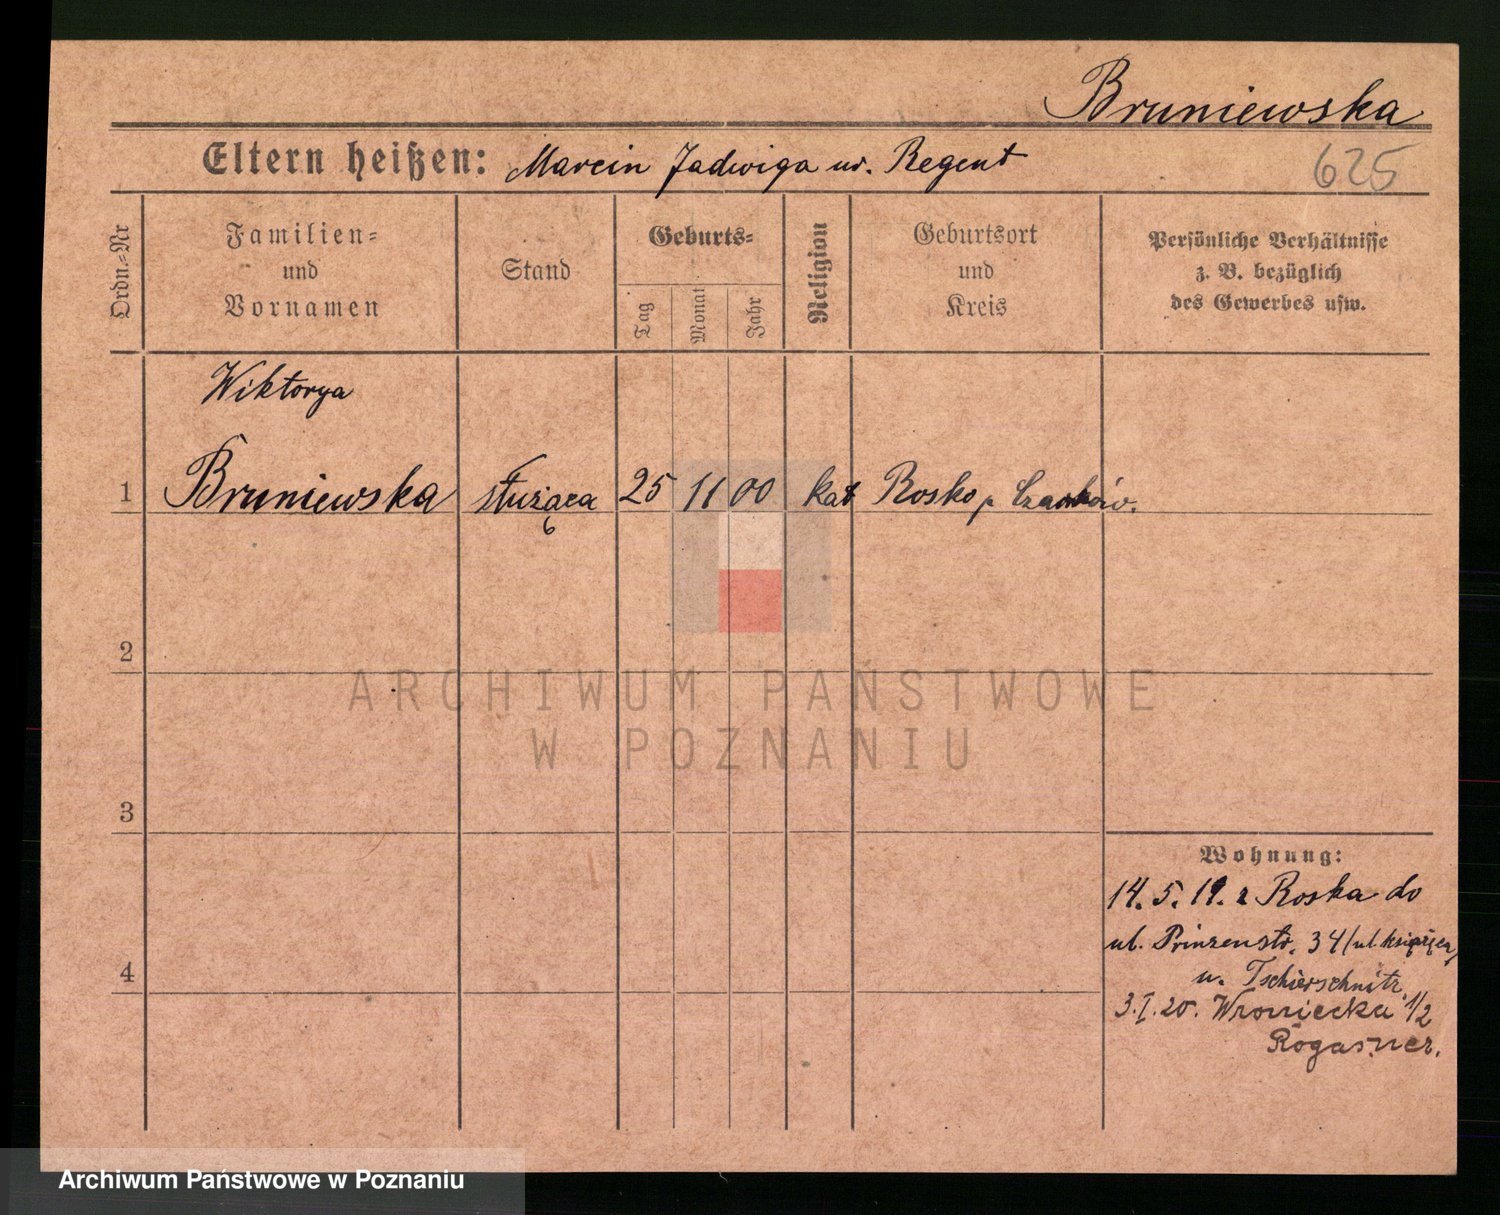 Bruniewska
Eltern heißen: Marcin Jadwiga ur. Regent
625
Ordn.-Nr
Familien-
und
Vornamen
Stand
Geburts-
Tag
Monat
Jahr
Religion
Geburtsort
und
Kreis
Persönliche Verhältnisse
z. B. bezüglich
des Gewerbes usw.
Wiktorya
1 Bruniewska służąca 25 11 00 kat Rosko p. Czarnków.
2
3
4
Wohnung:
14. 5. 19. z Roska do
ul. Prinzenstr. 34 (ul. książęca)
u. Tschierschnitz
3.I.20. Wroniecka 1/2
ARCHIWUM PAŃSTWOWE
W POZNANIU
Archiwum Państwowe w Poznaniu